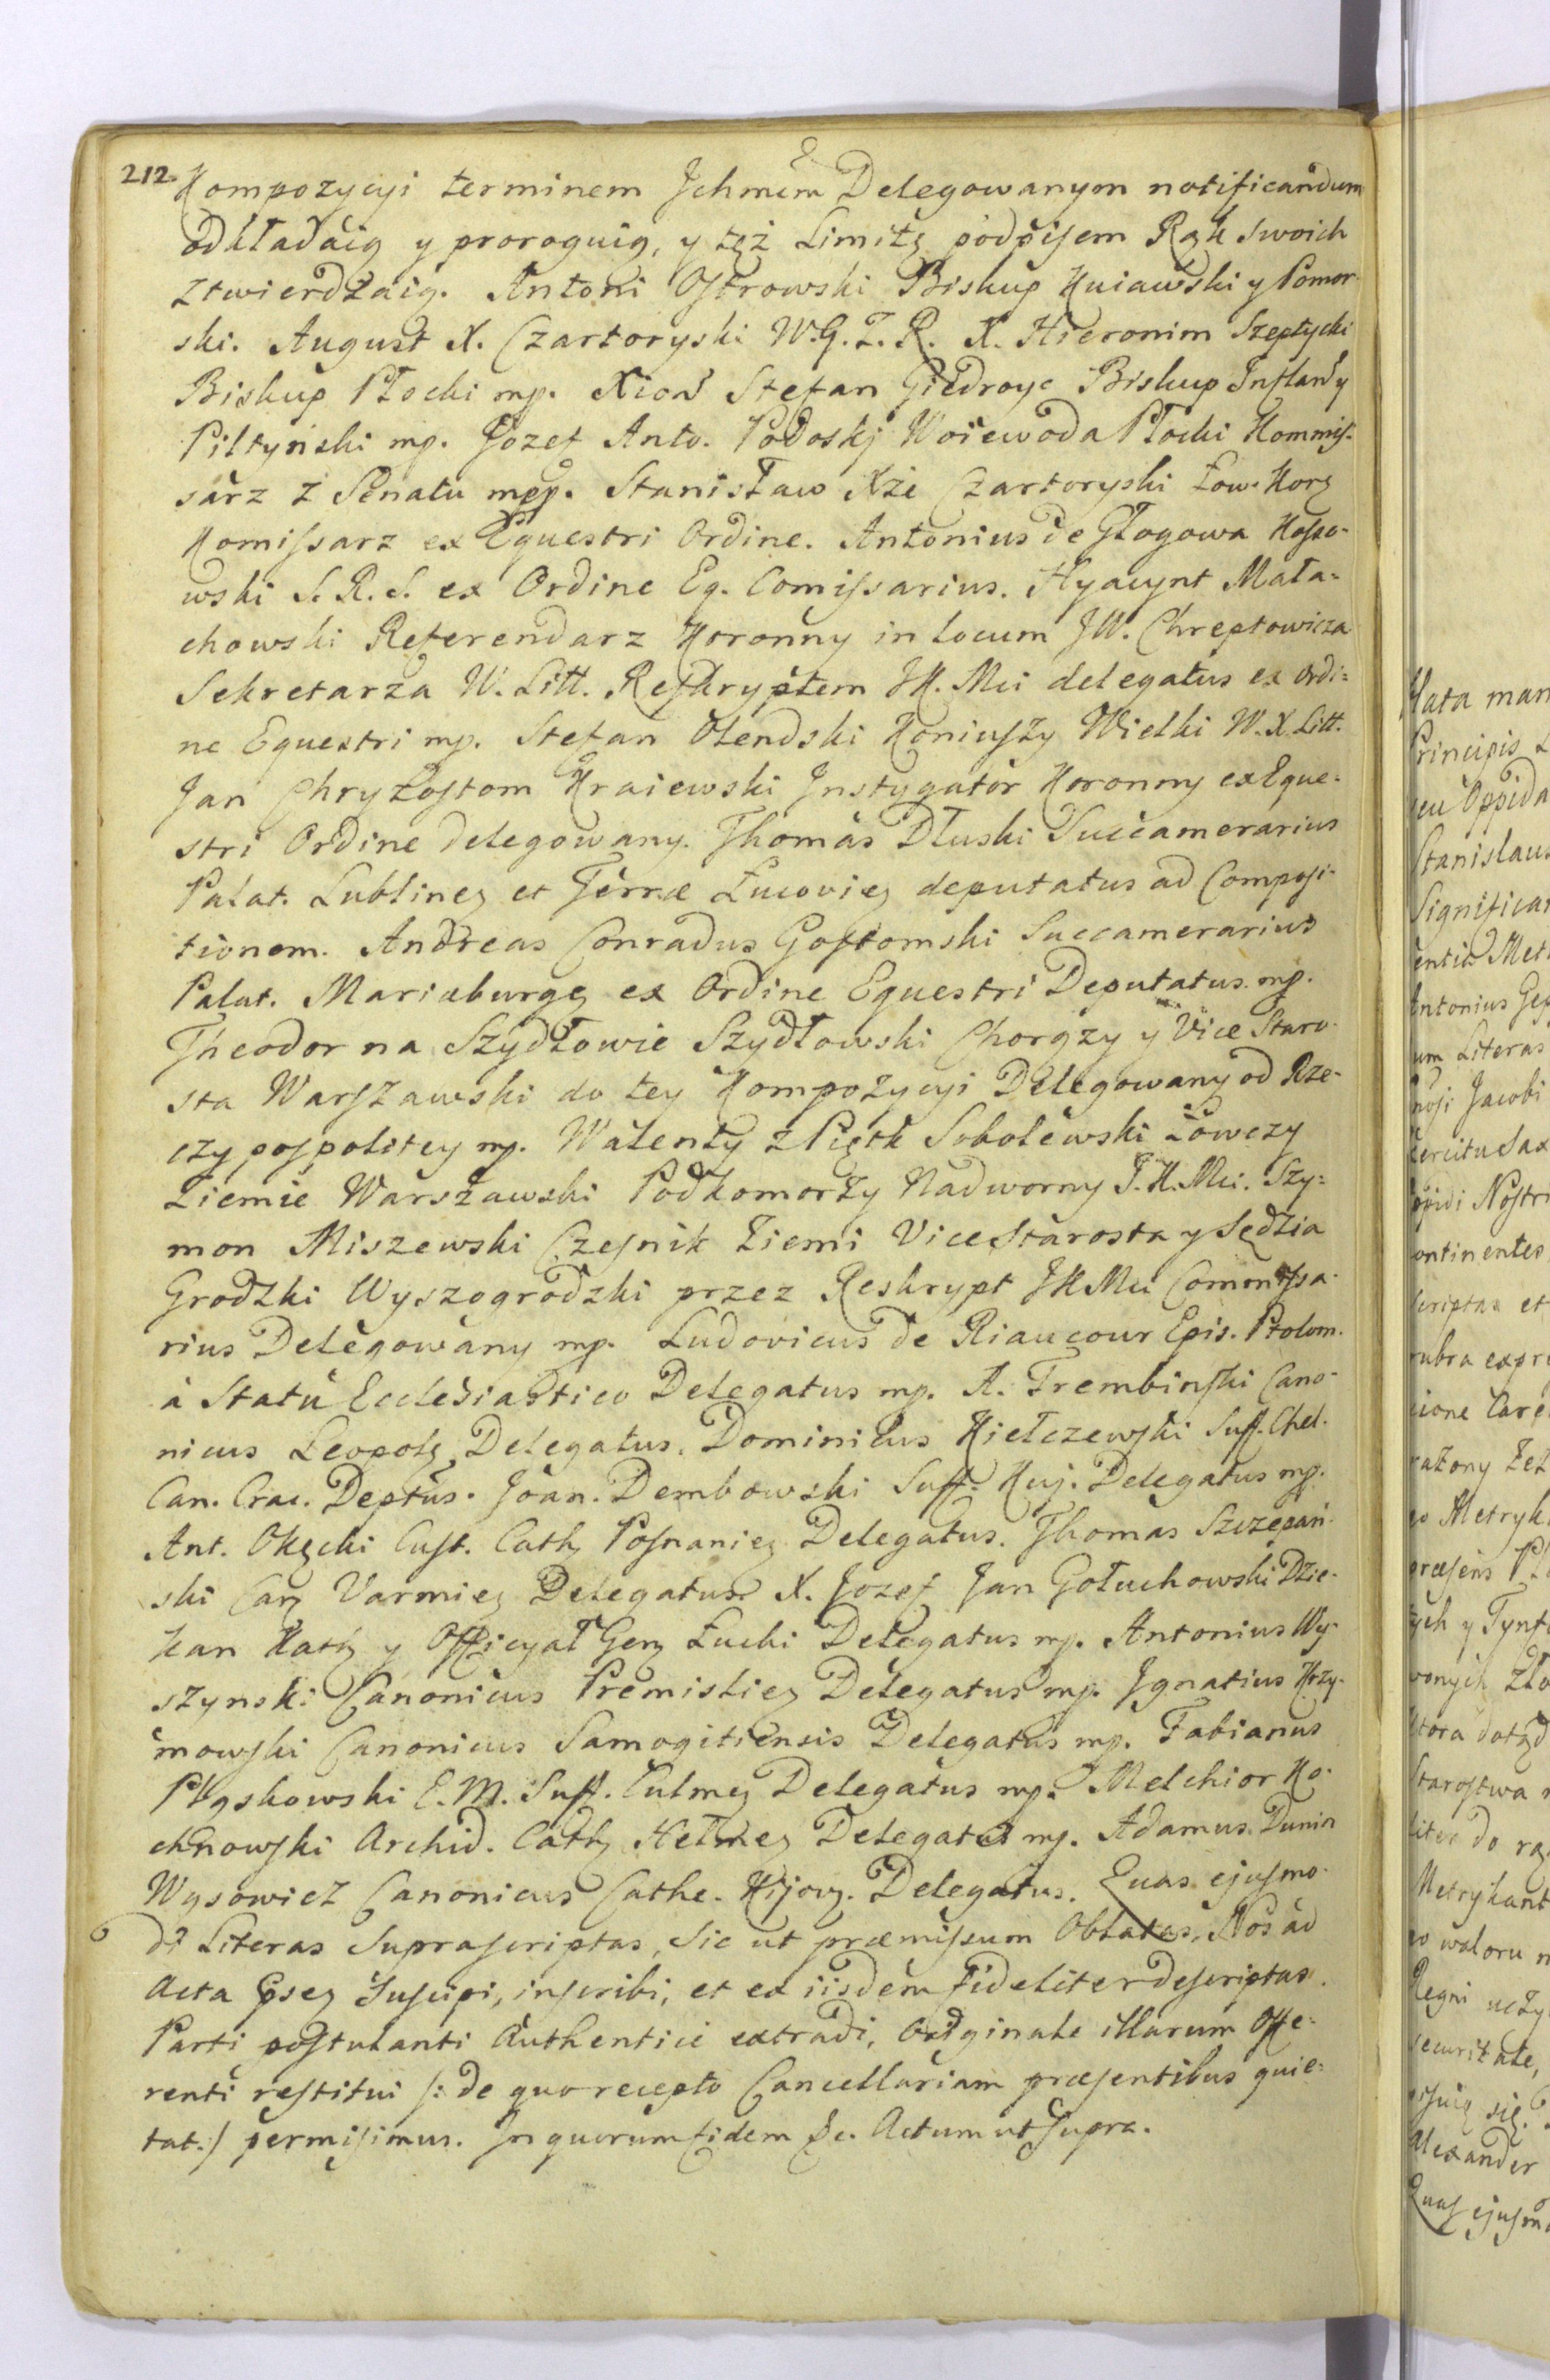 212.
Kompozycyi terminem Jchmcm Delegowanym notificandum
odkładaią y proroguią, y tęż Limitę podpisem Rąk swoich
ztwierdzaią. Antoni Ostrowski Biskup Kuiawski y Pomor-
ski. August X. Czartoryski W.G.Z.R. X. Hieronim Szeptycki
Biskup Płocki mp. Xiądz Stefan Giedroyc Biskup Inflandy
Piltyński mp. Jozef Anto. Podoskj Woiewoda Płocki Kommis-
sarz z Senatu mpp. Stanisław Xże Czartoryski Łow. Korą
Komissarz ex Equestri Ordine. Antonius de Głogowa Kosso-
wski S.R.S. ex Ordine Eq. Comissarius. Hyacynt Mała=
chowski Referendarz Koronny in locum JW. Chreptowicza
Sekretarza W. Litt. Reskryptem JK. Mci delegatus ex ordi=
ne Equestri mp. Stefan Olendski Koniuszy Wielki W.X. Litt.
Jan Chryzostom Kraiewski Jnstygator Koronny ex Eque-
stri Ordine delegowany. Thomas Dłuski Succamerarius
Palat. Lublineż et Terræ Łucovież deputatus ad Composi-
tionem. Andreas Conradus Gostomski Succamerarius
Palat. Mariæburgż ex Ordine Equestri Deputatus mp.
Theodor na Szydłowie Szydłowski Chorąży y Vice Staro-
sta Warszawski do tey Kompozycyi Delegowany od Rze-
czy pospolitey mp. Walenty z Piątk Sobolewski Łowczy
Ziemie Warszawski Podkomorzy Nadworny J.K.Mci. Szy=
mon Miszewski Czesnik Ziemi Vice Starosta y Sędzia
Grodzki Wyszogrodzki przez Reskrypt JKMci Commissa-
rius Delegowany mp. Ludovicus de Riaucour Epis. Ptolom.
à Statu Ecclesiastico Delegatus mp. A. Trembinski Cano-
nicus Leopolż Delegatus. Dominicus Kiełczewski Suff. Chel.
Can. Crac. Deptus. Joan. Dembowski Suff. Kuj. Delegatus mp.
Ant. Okęcki Cust. Cathż Posnanież Delegatus. Thomas Szczepań-
ski Canż Varmież Delegatus X. Jozef Jan Gołuchowski Dzie-
kan Kathż y Officyał Genż Łucki Delegatus mp. Antonius Wy-
szynski Canonicus Premislież Delegatus mp. Jgnatius Krzy-
mowski Canonicus Samogitiensis Delegatus mp. Fabianus
Pląskowski E.M. Suff. Culmeż Delegatus mp. Melchior Ko-
chnowski Archid. Cathż Helmeż Delegatus mp. Adamus Dunin
Wąsowicz Canonicus Cathe. Kijovż. Delegatus. Quas ejusmo-
di Literas Suprascriptas, sic ut præmissum Oblatas, Nos ad
Acta Gseż Suscipi, inscribi, et ex iisdem fideliter descriptas
Parti postulanti Authentice extradi, Originale illarum Offe-
renti restitui /: de quo recepto Cancellariam præsentibus quie=
tat:/ permisimus. In quorum fidem &c. Actum ut supra.